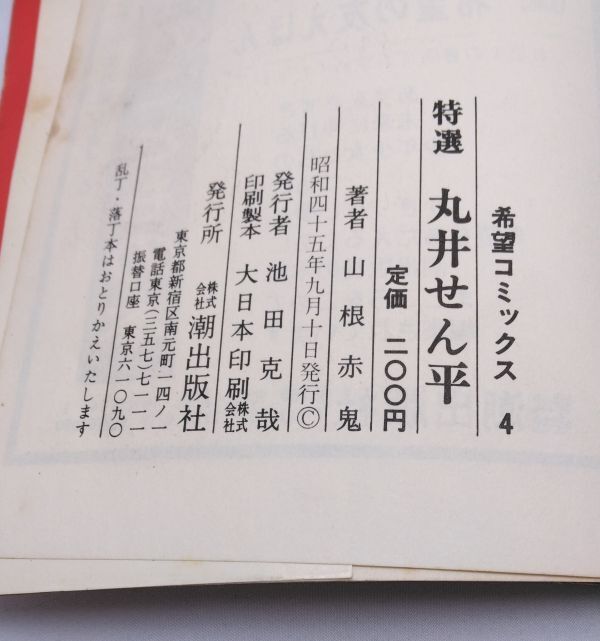 希望コミックス 4
特選 丸井せん平
定価 二〇〇円
著者 山根赤鬼
昭和四十五年九月十日発行©
発行者 池田克哉
印刷製本 大日本印刷株式会社
発行所 株式会社 潮出版社
東京都新宿区南元町一四ノ一
電話東京(三五七)七一一一
振替口座 東京六一〇九〇
乱丁・落丁本はおとりかえいたします